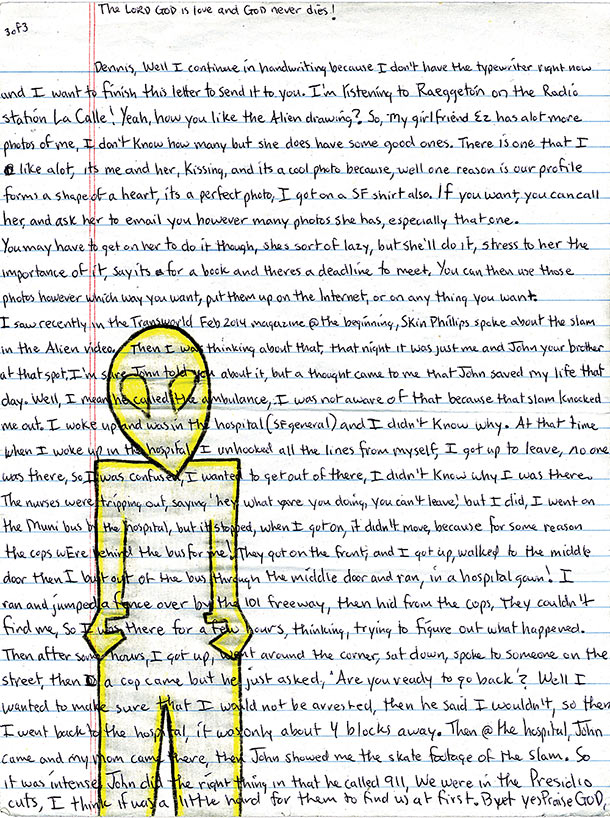 The LORD GOD is love and GOD never dies!
3 of 3
Dennis, Well I continue in handwriting because I don't have the typewriter right now
and I want to finish this letter to send it to you. I'm listening to Raeggeton on the Radio
station La Calle! Yeah, how you like the Alien drawing? So, my girlfriend Ez has alot more
photos of me, I don't know how many but she does have some good ones. There is one that I
like alot, its me and her, Kissing, and its a cool photo because, well one reason is our profile
forms a shape of a heart, its a perfect photo, I got on a SF shirt also. If you want, you can call
her, and ask her to email you however many photos she has, especially that one.
You may have to get on her to do it though, shes sort of lazy, but she'll do it, stress to her the
importance of it, say its for a book and theres a deadline to meet. You can then use those
photos however which way you want, put them up on the Internet, or on any thing you want.
I saw recently in the Transworld Feb 2014 magazine @ the beginning, Skin Phillips spoke about the slam
in the Alien video. Then I was thinking about that, that night it was just me and John your brother
at that spot, I'm sure John told you about it, but a thought came to me that John saved my life that
day. Well, I mean he called the ambulance, I was not aware of that because that slam knocked
me out. I woke up and was in the hospital (SF general) and I didn't know why. At that time
when I woke up in the hospital, I unhooked all the lines from myself, I got up to leave, no one
was there, so I was confused, I wanted to get out of there, I didn't know why I was there.
The nurses were tripping out, saying 'hey what are you doing, you can't leave,' but I did, I went on
the Muni bus by the hospital, but it stopped, when I got on, it didn't move, because for some reason
the cops wEre behind the bus for me! They got on the front, and I got up, walked to the middle
door then I bust out of the bus through the middle door and ran, in a hospital gown! I
ran and jumped a fence over by the 101 freeway, then hid from the cops, They couldn't
find me, So I was there for a few hours, thinking, trying to figure out what happened.
Then after some hours, I got up, went around the corner, sat down, spoke to someone on the
street, then a cop came but he just asked, 'Are you ready to go back'? Well I
wanted to make sure that I would not be arrested, then he said I wouldn't, so then
I went back to the hospital, it was only about 4 blocks away. Then @ the hospital, John
came and my mom came there, then John showed me the skate footage of the slam. So
it was intense, John did the right thing in that he called 911, We were in the Presidio
cuts, I think it was a little hard for them to find us at first. But yes Praise GOD,